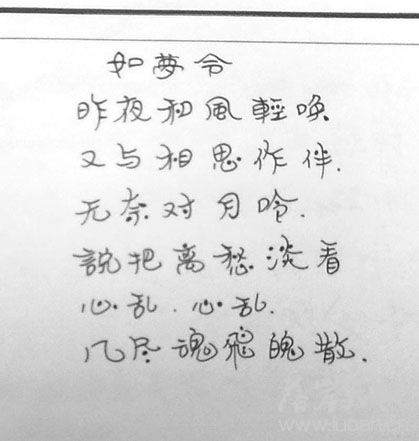 如夢令
昨夜和風輕唤
又与相思作伴.
无奈对月吟.
說把离愁淡看
心乱.心乱.
几尽魂飛魄散.